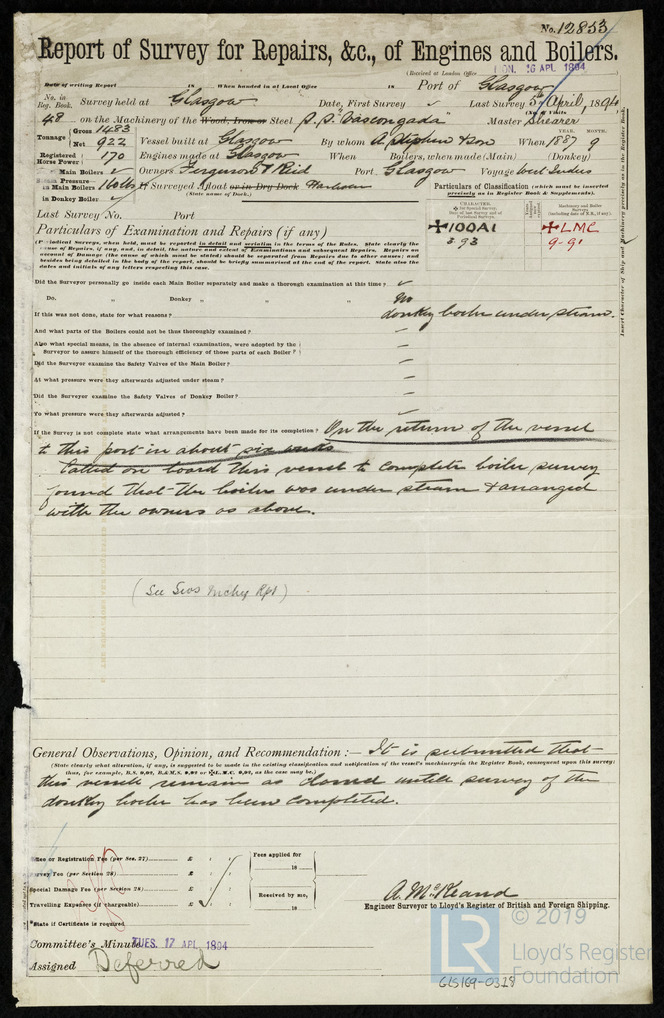 No. 12853
Report of Survey for Repairs, &c., of Engines and Boilers.
(Received at London Office
MON. 16 APL 1894
Date of writing Report 18 When handed in at Local Office 18 Port of Glasgow
No. in Reg. Book. Survey held at Glasgow Date, First Survey ✓ Last Survey 5th April, 1894
(No. of Visits
48 on the Machinery of the Wood, Iron or Steel S.S. "Vascongada" Master Shearer
Tonnage Gross 1483
Net 922 Vessel built at Glasgow By whom A Stephen & Son When 1887 YEAR. MONTH. 9
Registered Horse Power 170 Engines made at Glasgow When Boilers, when made (Main) (Donkey)
Main Boilers ✓ Owners Ferguson & Reid Port Glasgow Voyage West Indies
Pressure in Main Boilers 160 lbs If Surveyed Afloat or in Dry Dock Harbour
(State name of Dock.)
in Donkey Boiler
Particulars of Classification (which must be inserted
precisely as in Register Book & Supplements).
Last Survey No. Port
CHARACTER.
Machinery and Boiler Surveys
(including date of N.B., if any).
✠100A1
3.93
✠LMC
9-91
Insert Character of Ship and Machinery precisely as in the Register Book.
Particulars of Examination and Repairs (if any)
(Periodical Surveys, when held, must be reported in detail and seriatim in the terms of the Rules. State clearly the
cause of Repairs, if any, and, in detail, the nature and extent of Examinations and subsequent Repairs. Repairs on
account of Damage (the cause of which must be stated) should be separated from Repairs due to other causes; and
besides being detailed in the body of the report, should be briefly summarised at the end of the report. State also the
dates and initials of any letters respecting this case.
Did the Surveyor personally go inside each Main Boiler separately and make a thorough examination at this time? ✓
Do. „ Donkey „ „ „ No
If this was not done, state for what reasons? donkey boiler under steam.
And what parts of the Boilers could not be thus thoroughly examined? –
Also what special means, in the absence of internal examination, were adopted by the
Surveyor to assure himself of the thorough efficiency of those parts of each Boiler? –
Did the Surveyor examine the Safety Valves of the Main Boiler? –
At what pressure were they afterwards adjusted under steam? –
Did the Surveyor examine the Safety Valves of Donkey Boiler? –
To what pressure were they afterwards adjusted? –
If the Survey is not complete state what arrangements have been made for its completion? On the return of the vessel
to this port in about six weeks
Called on board this vessel to complete boiler survey
found that the boiler was under steam & arranged
with the owners as above.
(See Secs Mchy Rpt)
General Observations, Opinion, and Recommendation :— It is submitted that
(State clearly what alteration, if any, is suggested to be made in the existing classification and notification of the vessel's machinery in the Register Book, consequent upon this survey;
thus, for example, B.S. 9,92, B.&M.S. 9,92 or ✠L.M.C. 9,92, as the case may be.)
this vessels remain as classed until survey of the
donkey boiler has been completed.
Office or Registration Fee (per Sec. 27) £ : :
Survey Fee (per Section 28) £ : :
Special Damage Fee (per Section 28) £ : :
Travelling Expenses (if chargeable) £ : :
Fees applied for
18
Received by me,
18
*State if Certificate is required
A. McKeand
Engineer Surveyor to Lloyd's Register of British and Foreign Shipping.
Committee's Minute TUES. 17 APL 1894
Assigned Deferred
LR
© 2019
Lloyd's Register
Foundation
GLS169-0328